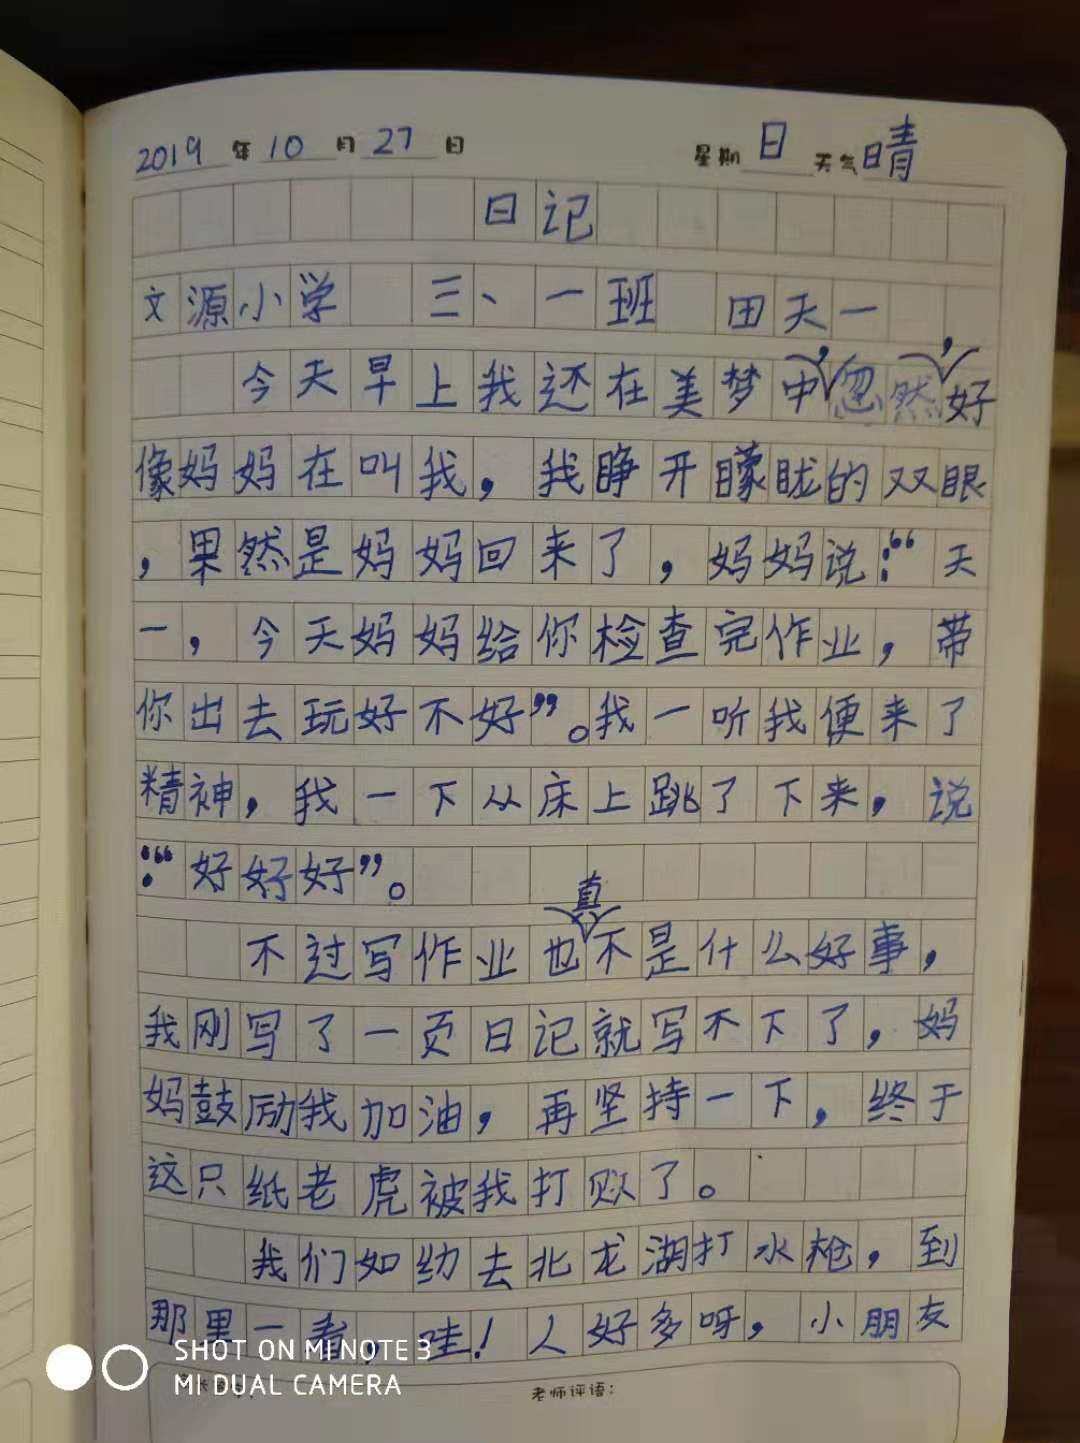 2019年10月27日 星期日 天气晴
日记
文源小学 三、一班 田天一
今天早上我还在美梦中，忽然，好
像妈妈在叫我，我睁开朦胧的双眼
，果然是妈妈回来了，妈妈说：“天
一，今天妈妈给你检查完作业，带
你出去玩好不好”。我一听我便来了
精神，我一下从床上跳了下来，说
：“好好好”。
不过写作业也直不是什么好事，
我刚写了一页日记就写不下了，妈
妈鼓励我加油，再坚持一下，终于
这只纸老虎被我打败了。
我们如约去北龙湖打水枪，到
那里一看，哇！人好多呀，小朋友
SHOT ON MI NOTE 3
MI DUAL CAMERA
老师评语：